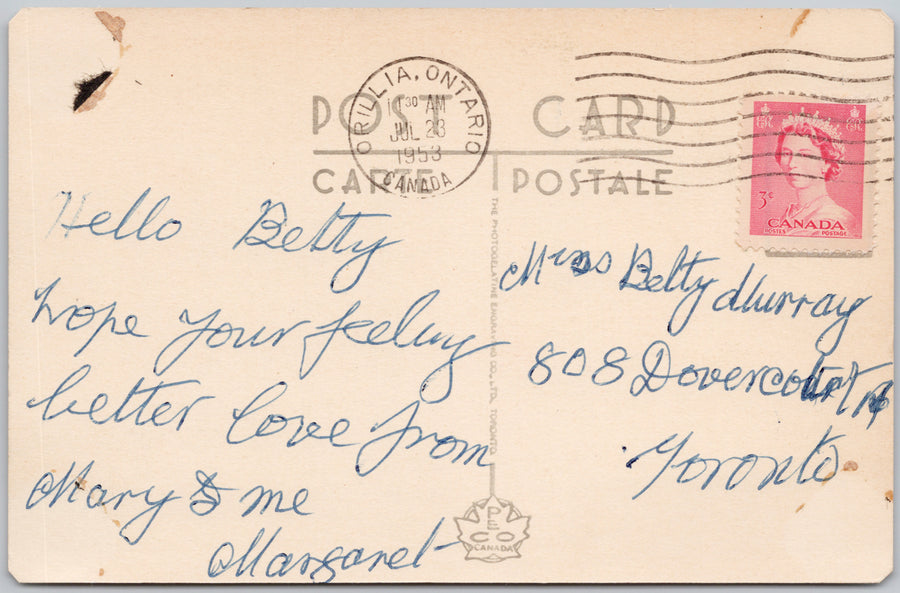 POST CARD
CARTE POSTALE
ORILLIA, ONTARIO
11 30 AM
JUL 23
1953
CANADA
3¢
CANADA
POSTES POSTAGE
Hello Betty
hope your feeling
better love from
Mary & me
Margaret
THE PHOTOGELATINE ENGRAVING CO., LTD. TORONTO
PECO
CANADA
Miss Betty Murray
808 Dovercourt Rd
Toronto